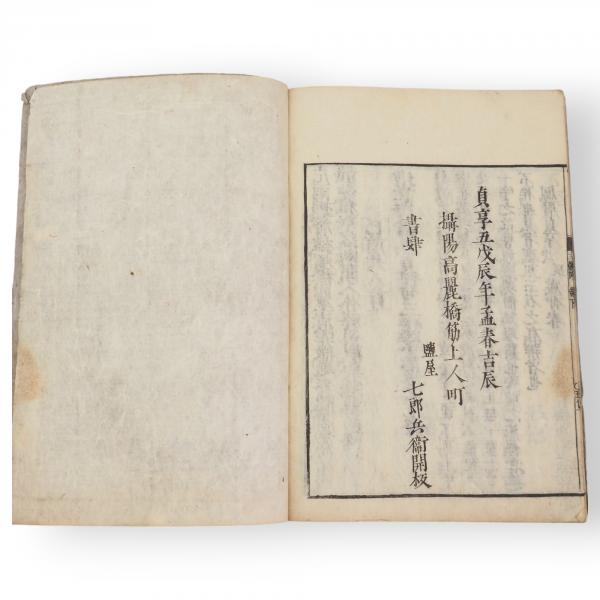 貞享五戊辰年孟春吉辰
攝陽高麗橋筋上人町
書肆
鹽屋
七郎兵衞開板